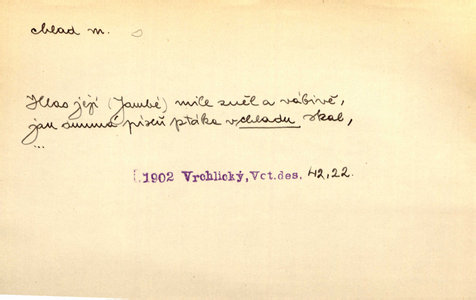 chlad m.
Hlas její (Jambé) mile zněl a vábivě,
jak smavá píseň ptáka v chladu skal,
...
1902 Vrchlický, Vct.des. 42,22.